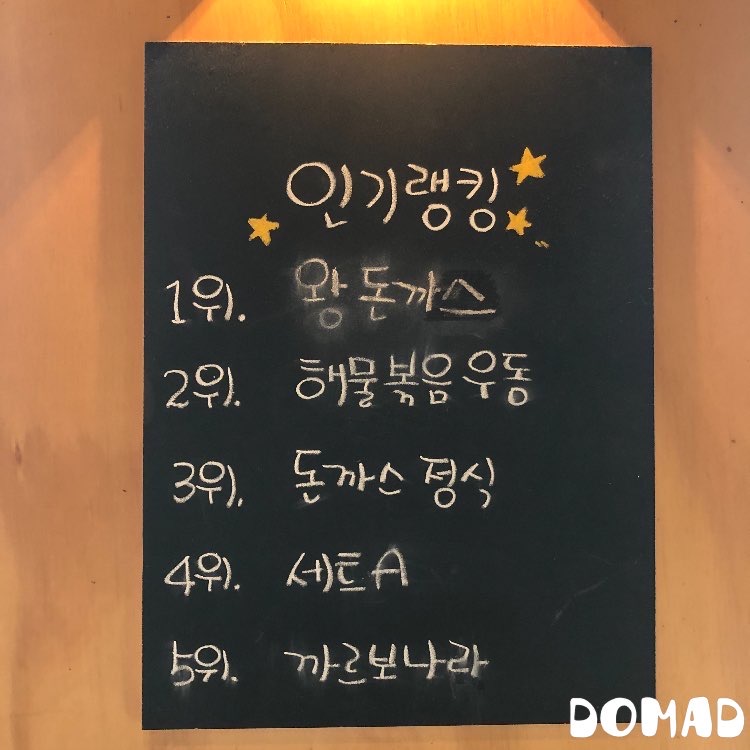 인기랭킹
1위. 왕돈까스
2위. 해물볶음우동
3위. 돈까스 정식
4위. 세트A
5위. 까르보나라
DOMAD